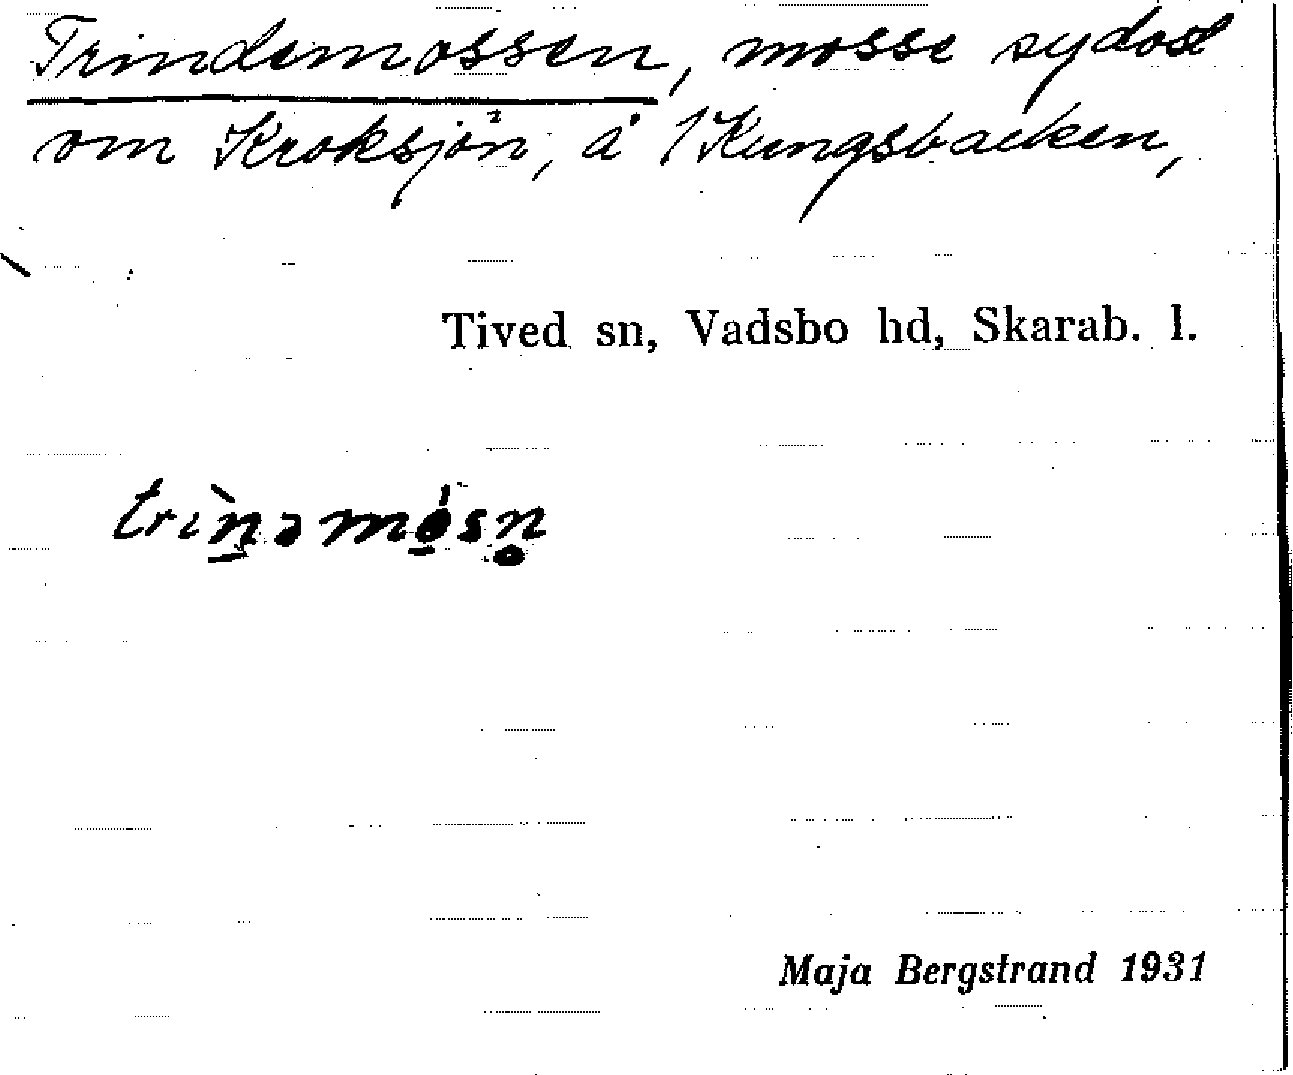 Trindemossen, mosse sydost
om Kroksjön, å /Kungsbacken,
Tived sn, Vadsbo hd, Skarab. l.
trìn̠əmó̠sn̥
Maja Bergstrand 1931